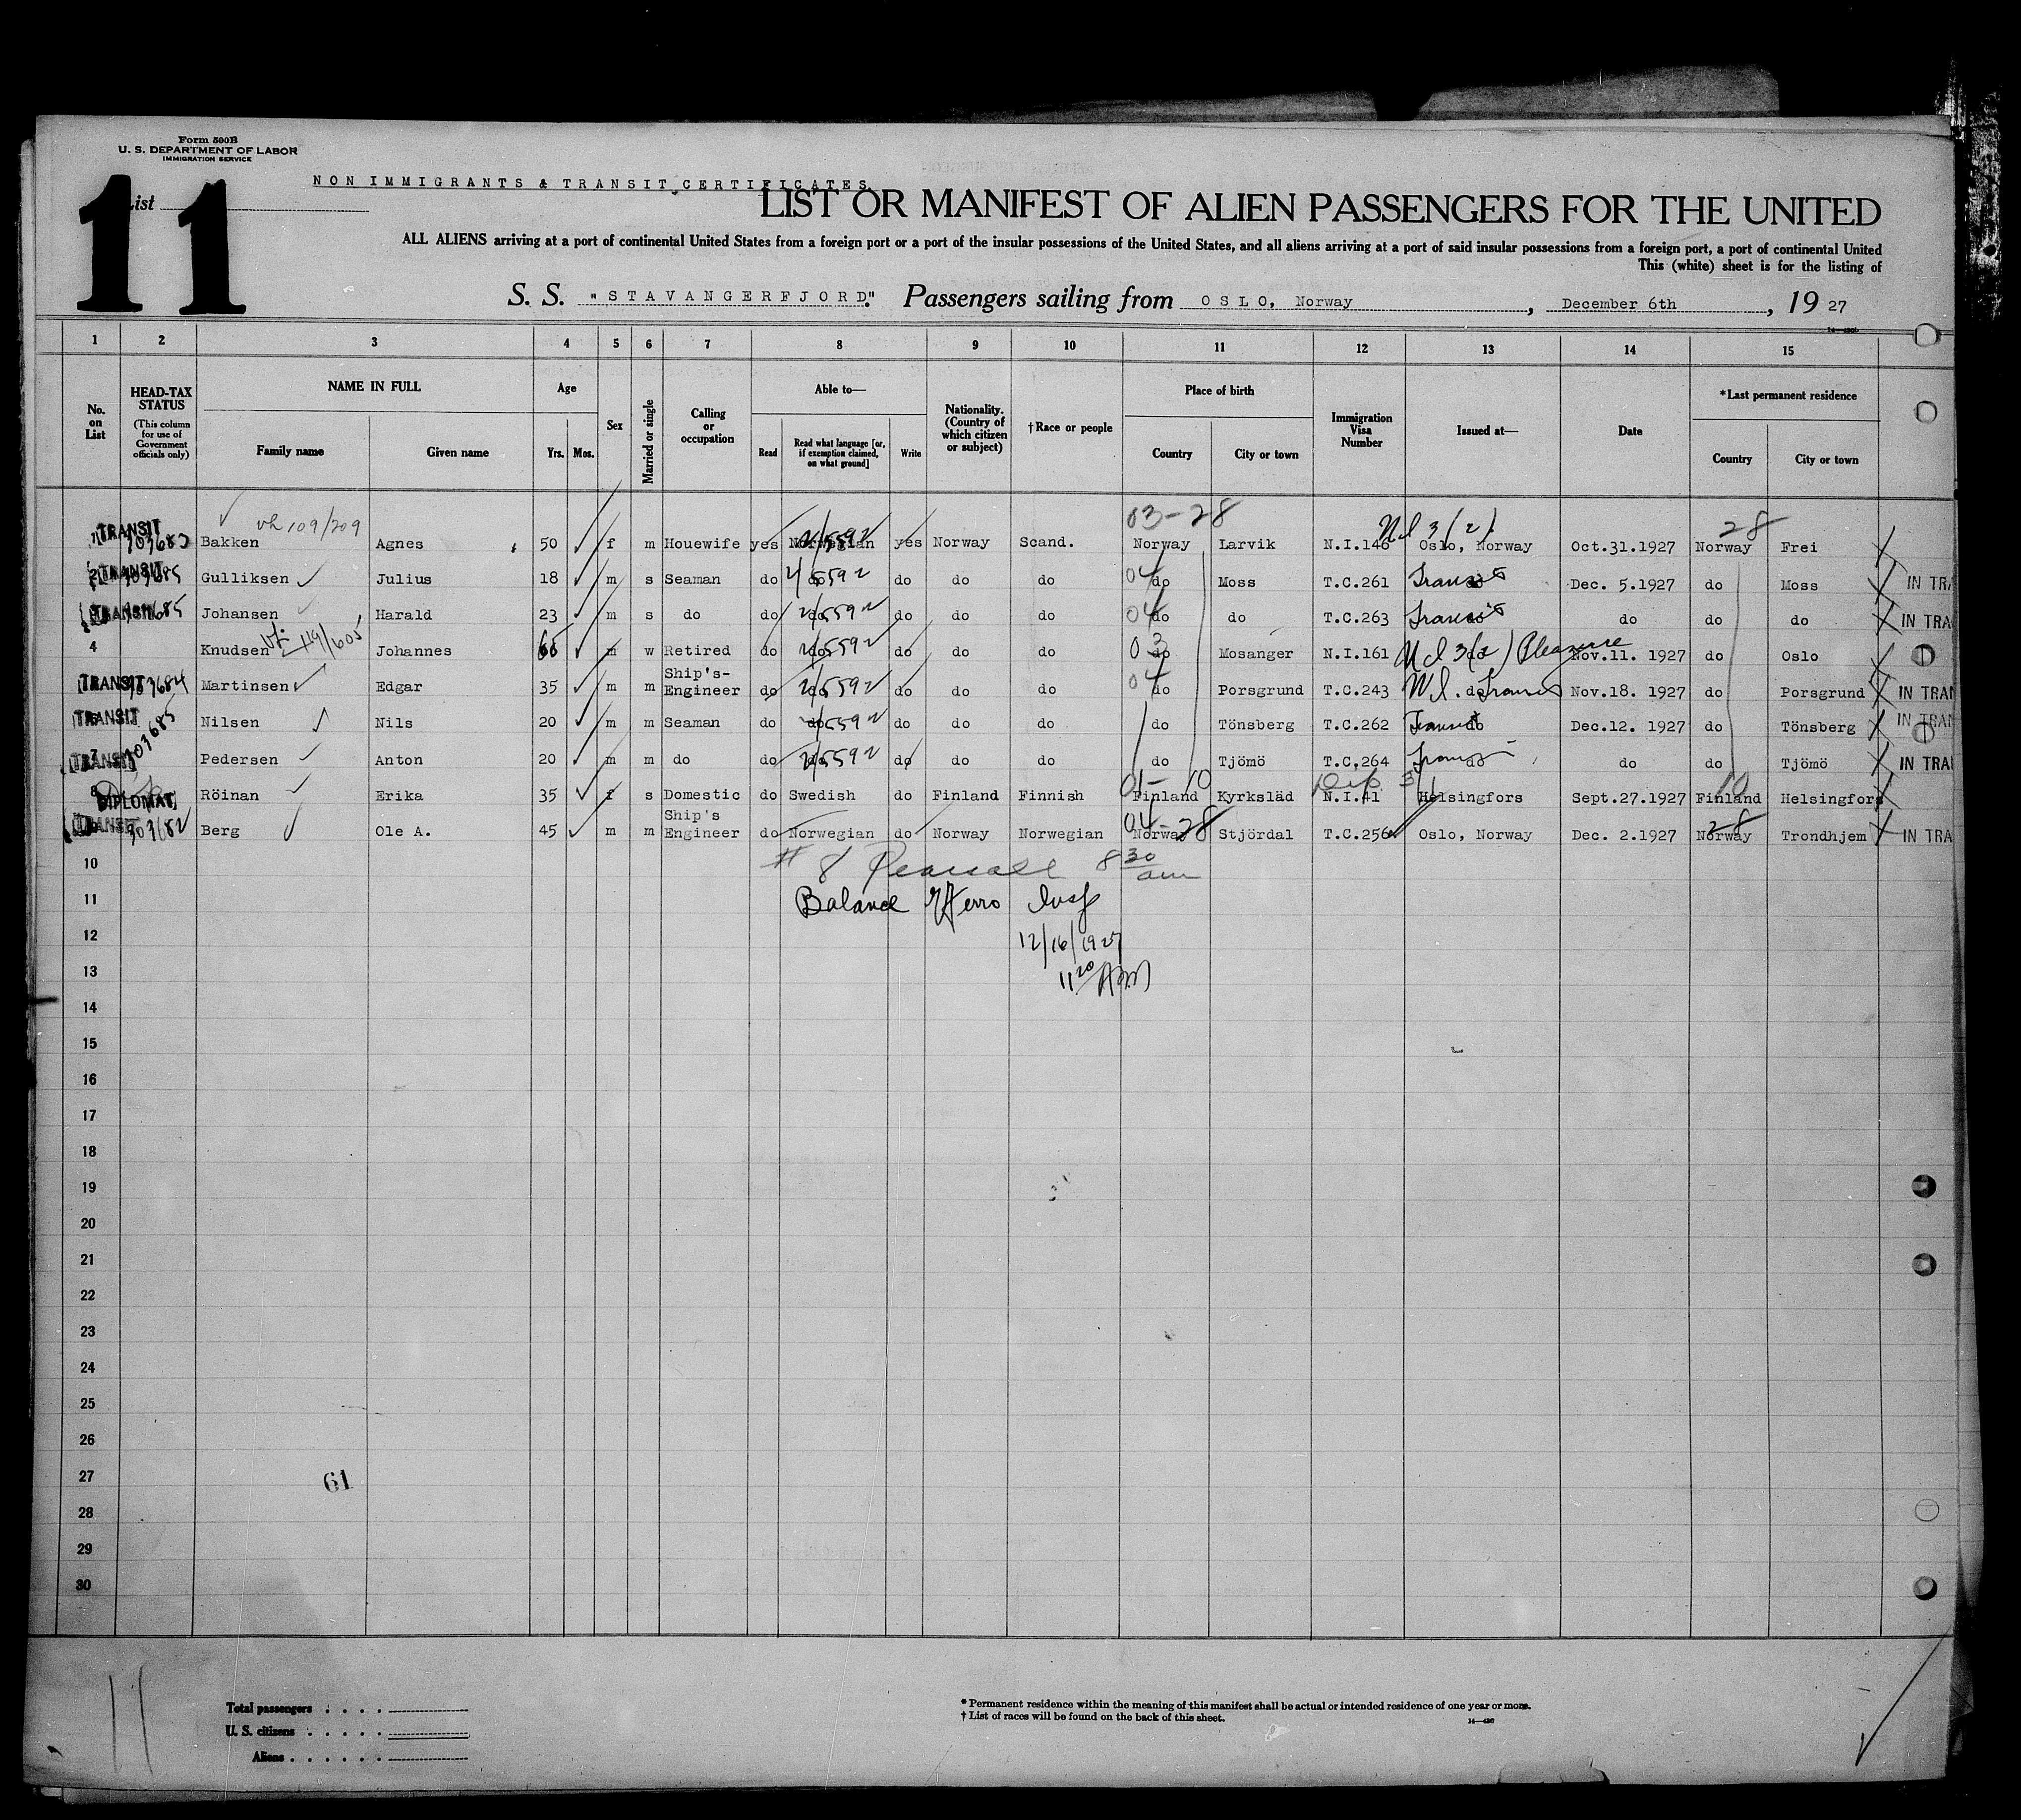 Form 500B
U. S. DEPARTMENT OF LABOR
IMMIGRATION SERVICE
11
List
NON IMMIGRANTS & TRANSIT CERTIFICATES.
LIST OR MANIFEST OF ALIEN PASSENGERS FOR THE UNITED
ALL ALIENS arriving at a port of continental United States from a foreign port or a port of the insular possessions of the United States, and all aliens arriving at a port of said insular possessions from a foreign port, a port of continental United
This (white) sheet is for the listing of
S. S. "STAVANGERFJORD." Passengers sailing from OSLO, Norway, December 6th, 19 27
1 2 3 4 5 6 7 8 9 10 11 12 13 14 15
No. on List
HEAD-TAX STATUS (This column for use of Government officials only)
NAME IN FULL
Family name Given name
Age
Yrs. Mos.
Sex
Married or single
Calling or occupation
Able to—
Read Read what language [or, if exemption claimed, on what ground] Write
Nationality. (Country of which citizen or subject)
†Race or people
Place of birth
Country City or town
Immigration Visa Number
Issued at—
Date
*Last permanent residence
Country City or town
109/209 03-28 28
1 TRANSIT Bakken Agnes 50 f m Houewife yes Norwegian yes Norway Scand. Norway Larvik N.I.146 Oslo, Norway Oct.31.1927 Norway Frei
2 TRANSIT Gulliksen Julius 18 m s Seaman do do do do do 04 do Moss T.C.261 Transit Dec. 5.1927 do Moss IN TRA
TRANSIT Johansen Harald 23 m s do do do do do do 04 do do T.C.263 Transit do do do do IN TRA
4 Knudsen 419/605 Johannes 66 m w Retired do do do do do 03 do Mosanger N.I.161 do Pleasure Nov.11. 1927 do Oslo
TRANSIT Martinsen Edgar 35 m m Ship's-Engineer do do do do do 04 do Porsgrund T.C.243 do Transit Nov.18. 1927 do Porsgrund IN TRAN
TRANSIT Nilsen Nils 20 m m Seaman do do do do do do Tönsberg T.C.262 Transit do Dec.12. 1927 do Tönsberg IN TRAN
7 TRANSIT Pedersen Anton 20 m m do do do do do do do Tjömö T.C.264 Transit do do do Tjömö IN TRAN
01- 10 10
8 DIPLOMAT Röinan Erika 35 f s Domestic do Swedish do Finland Finnish Finland Kyrksläd N.I.41 Helsingfors Sept.27.1927 Finland Helsingfors
TRANSIT Berg Ole A. 45 m m Ship's Engineer do Norwegian do Norway Norwegian 04-28 Norway Stjördal T.C.256 Oslo, Norway Dec. 2.1927 28 Norway Trondhjem IN TRA
10 # 8 8 30 am
11 Balance Insp
12 12/16/1927
13 11 20 AM
14
15
16
17
18
19
20
21
22
23
24
25
26
27 61
28
29
30
11
Total passengers . . . .
U. S. citizens . . . . .
Aliens . . . . . .
* Permanent residence within the meaning of this manifest shall be actual or intended residence of one year or more.
† List of races will be found on the back of this sheet.